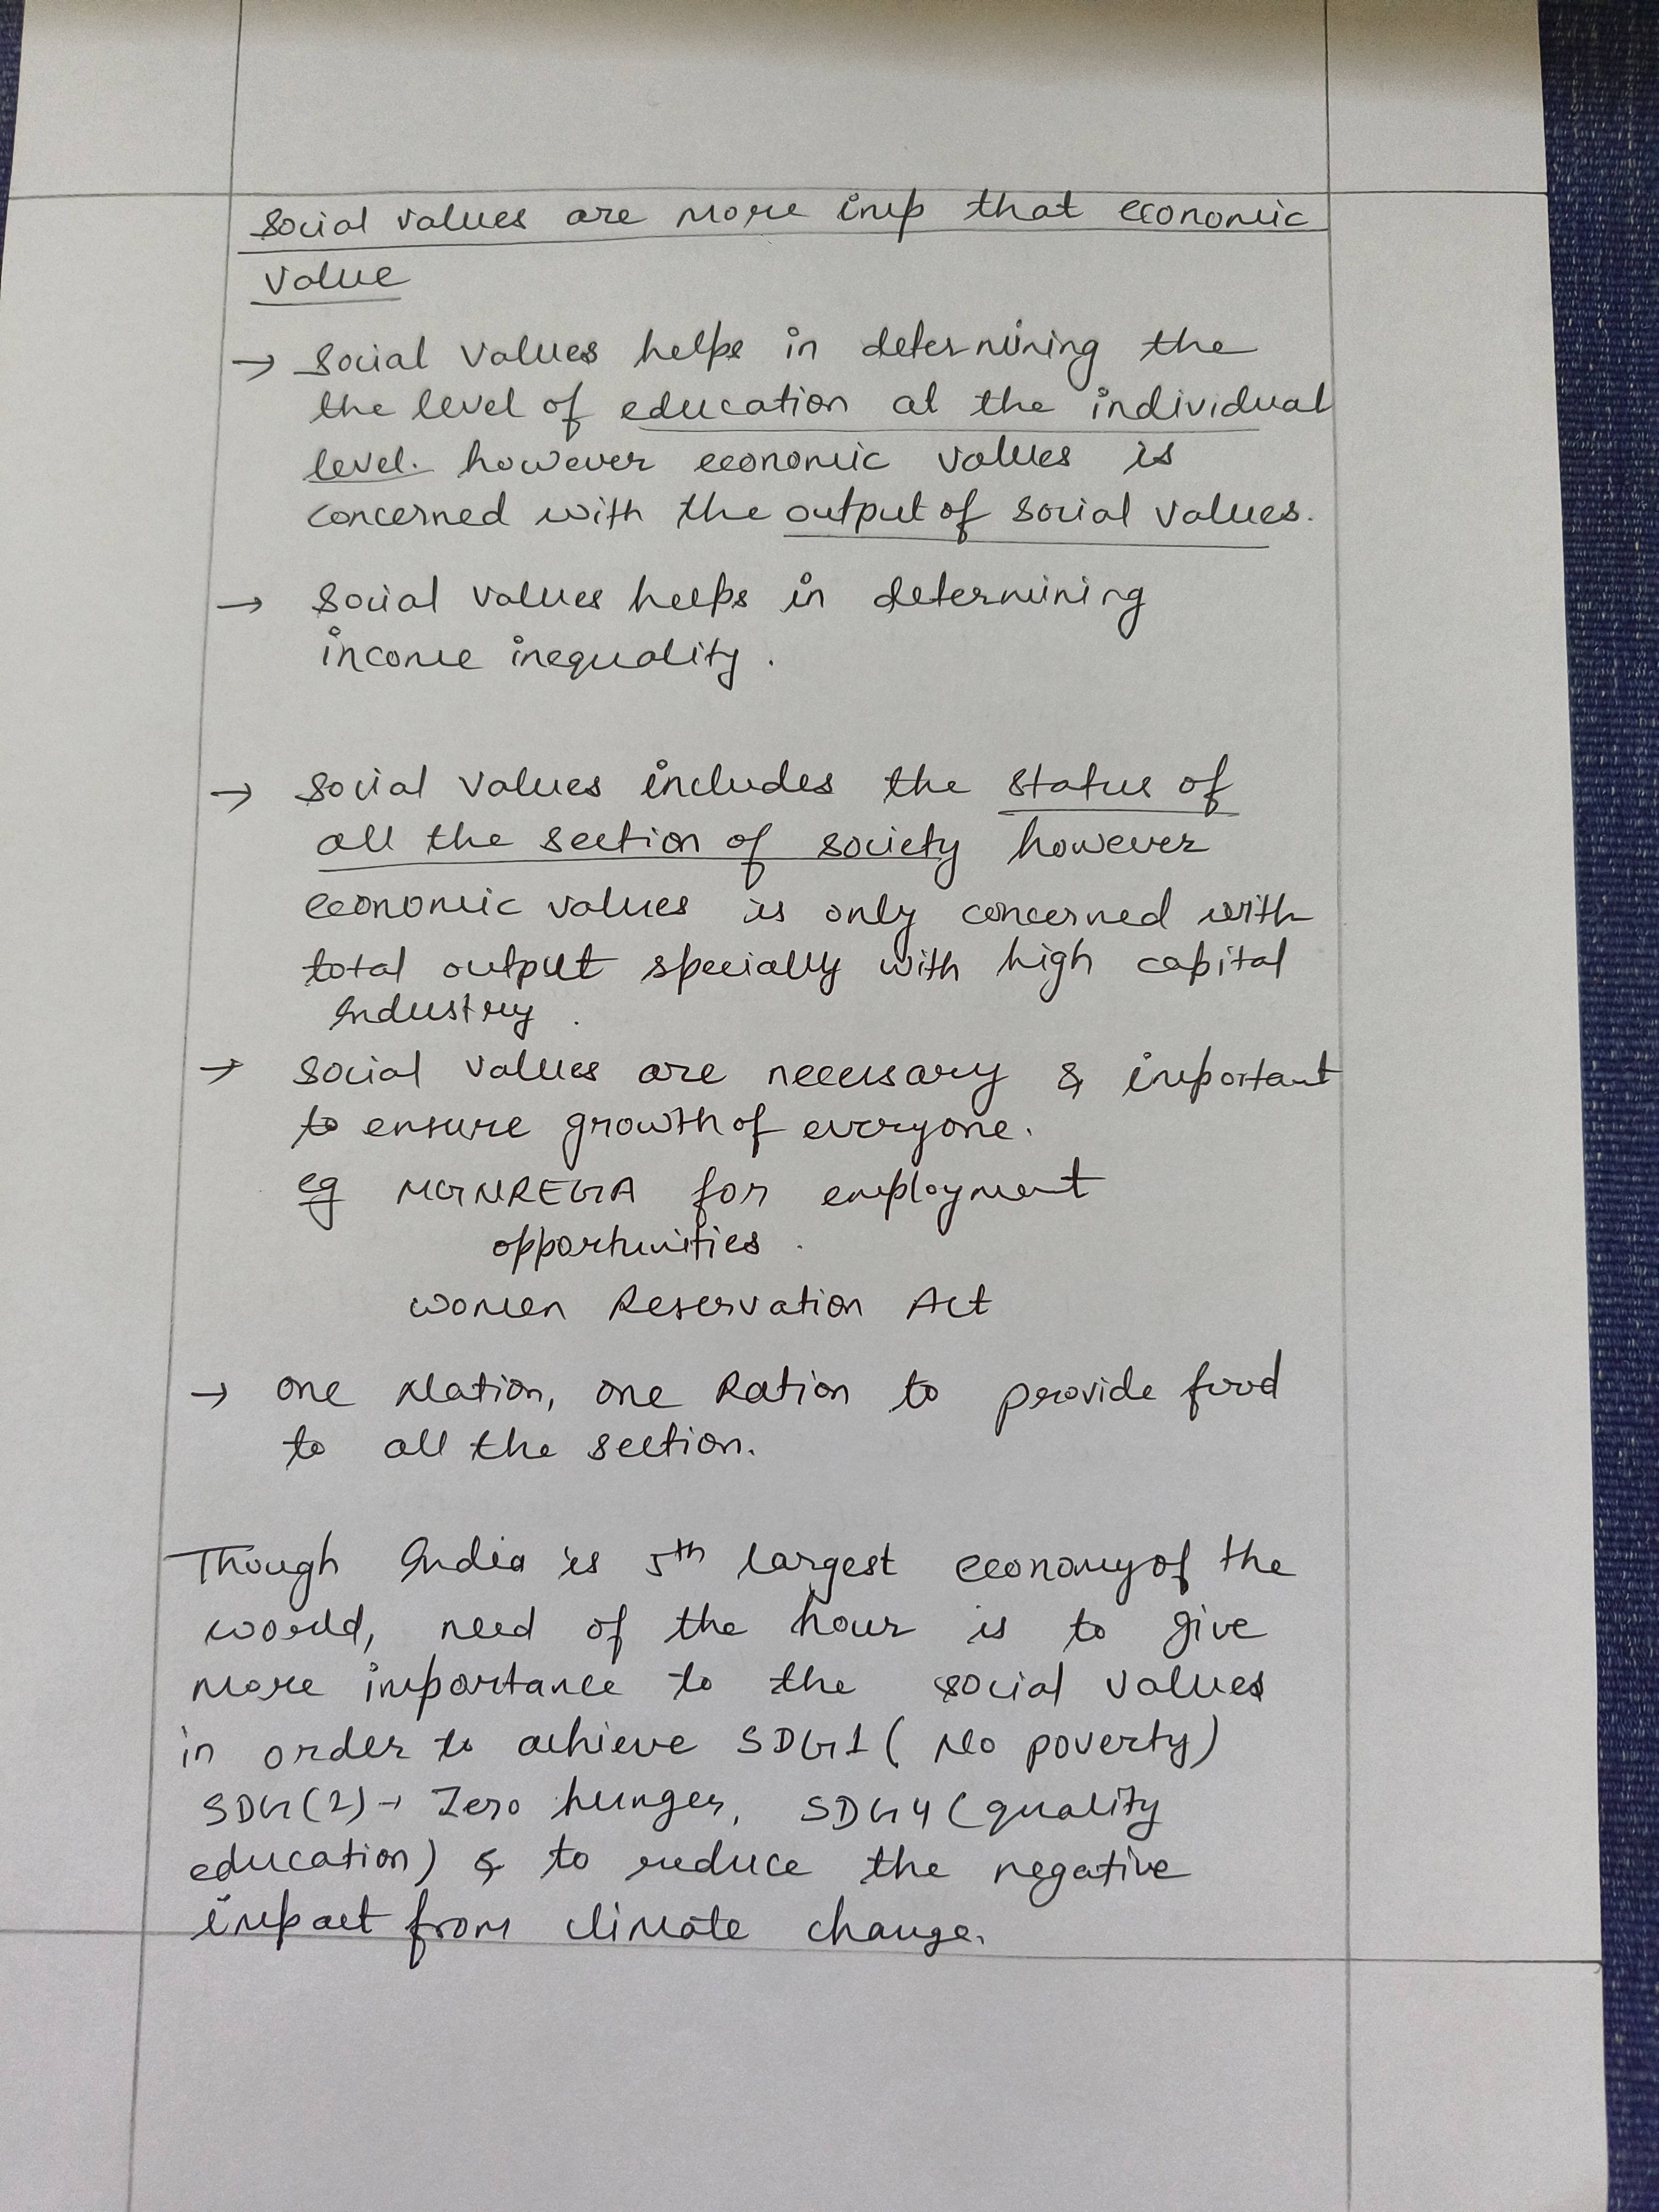 Social values are more imp that economic
value
→ Social values helps in determining the
the level of education at the individual
level. however economic values is
concerned with the output of social values.
→ Social values helps in determining
income inequality.
→ Social values includes the status of
all the section of society however
economic values is only concerned with
total output specially with high capital
Industry.
→ Social values are necessary & important
to ensure growth of everyone.
eg MGNREGA for employment
opportunities.
women Reservation Act
→ One Nation, One Ration to provide food
to all the section.
Though India is 5th largest economy of the
world, need of the hour is to give
more importance to the social values
in order to achieve SDG1 (No poverty)
SDG(2)→ Zero hunger, SDG4 (quality
education) & to reduce the negative
impact from climate change.